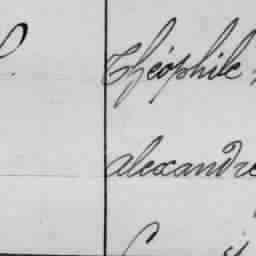 Théophile
alexandre